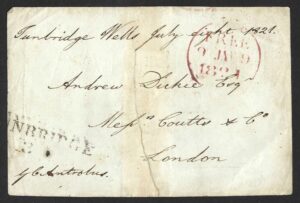 Tunbridge Wells July Eight 1821.
FREE
9 JY 9
1821
Andrew Dickie Esqr
Messrs Coutts & Co
NBRIDGE
London
G Antrobus